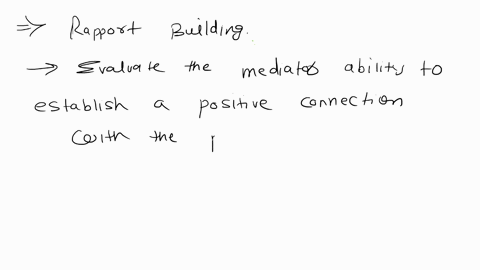 ⇒ Rapport Building.
→ Evaluate the mediators ability to
establish a positive connection
with the